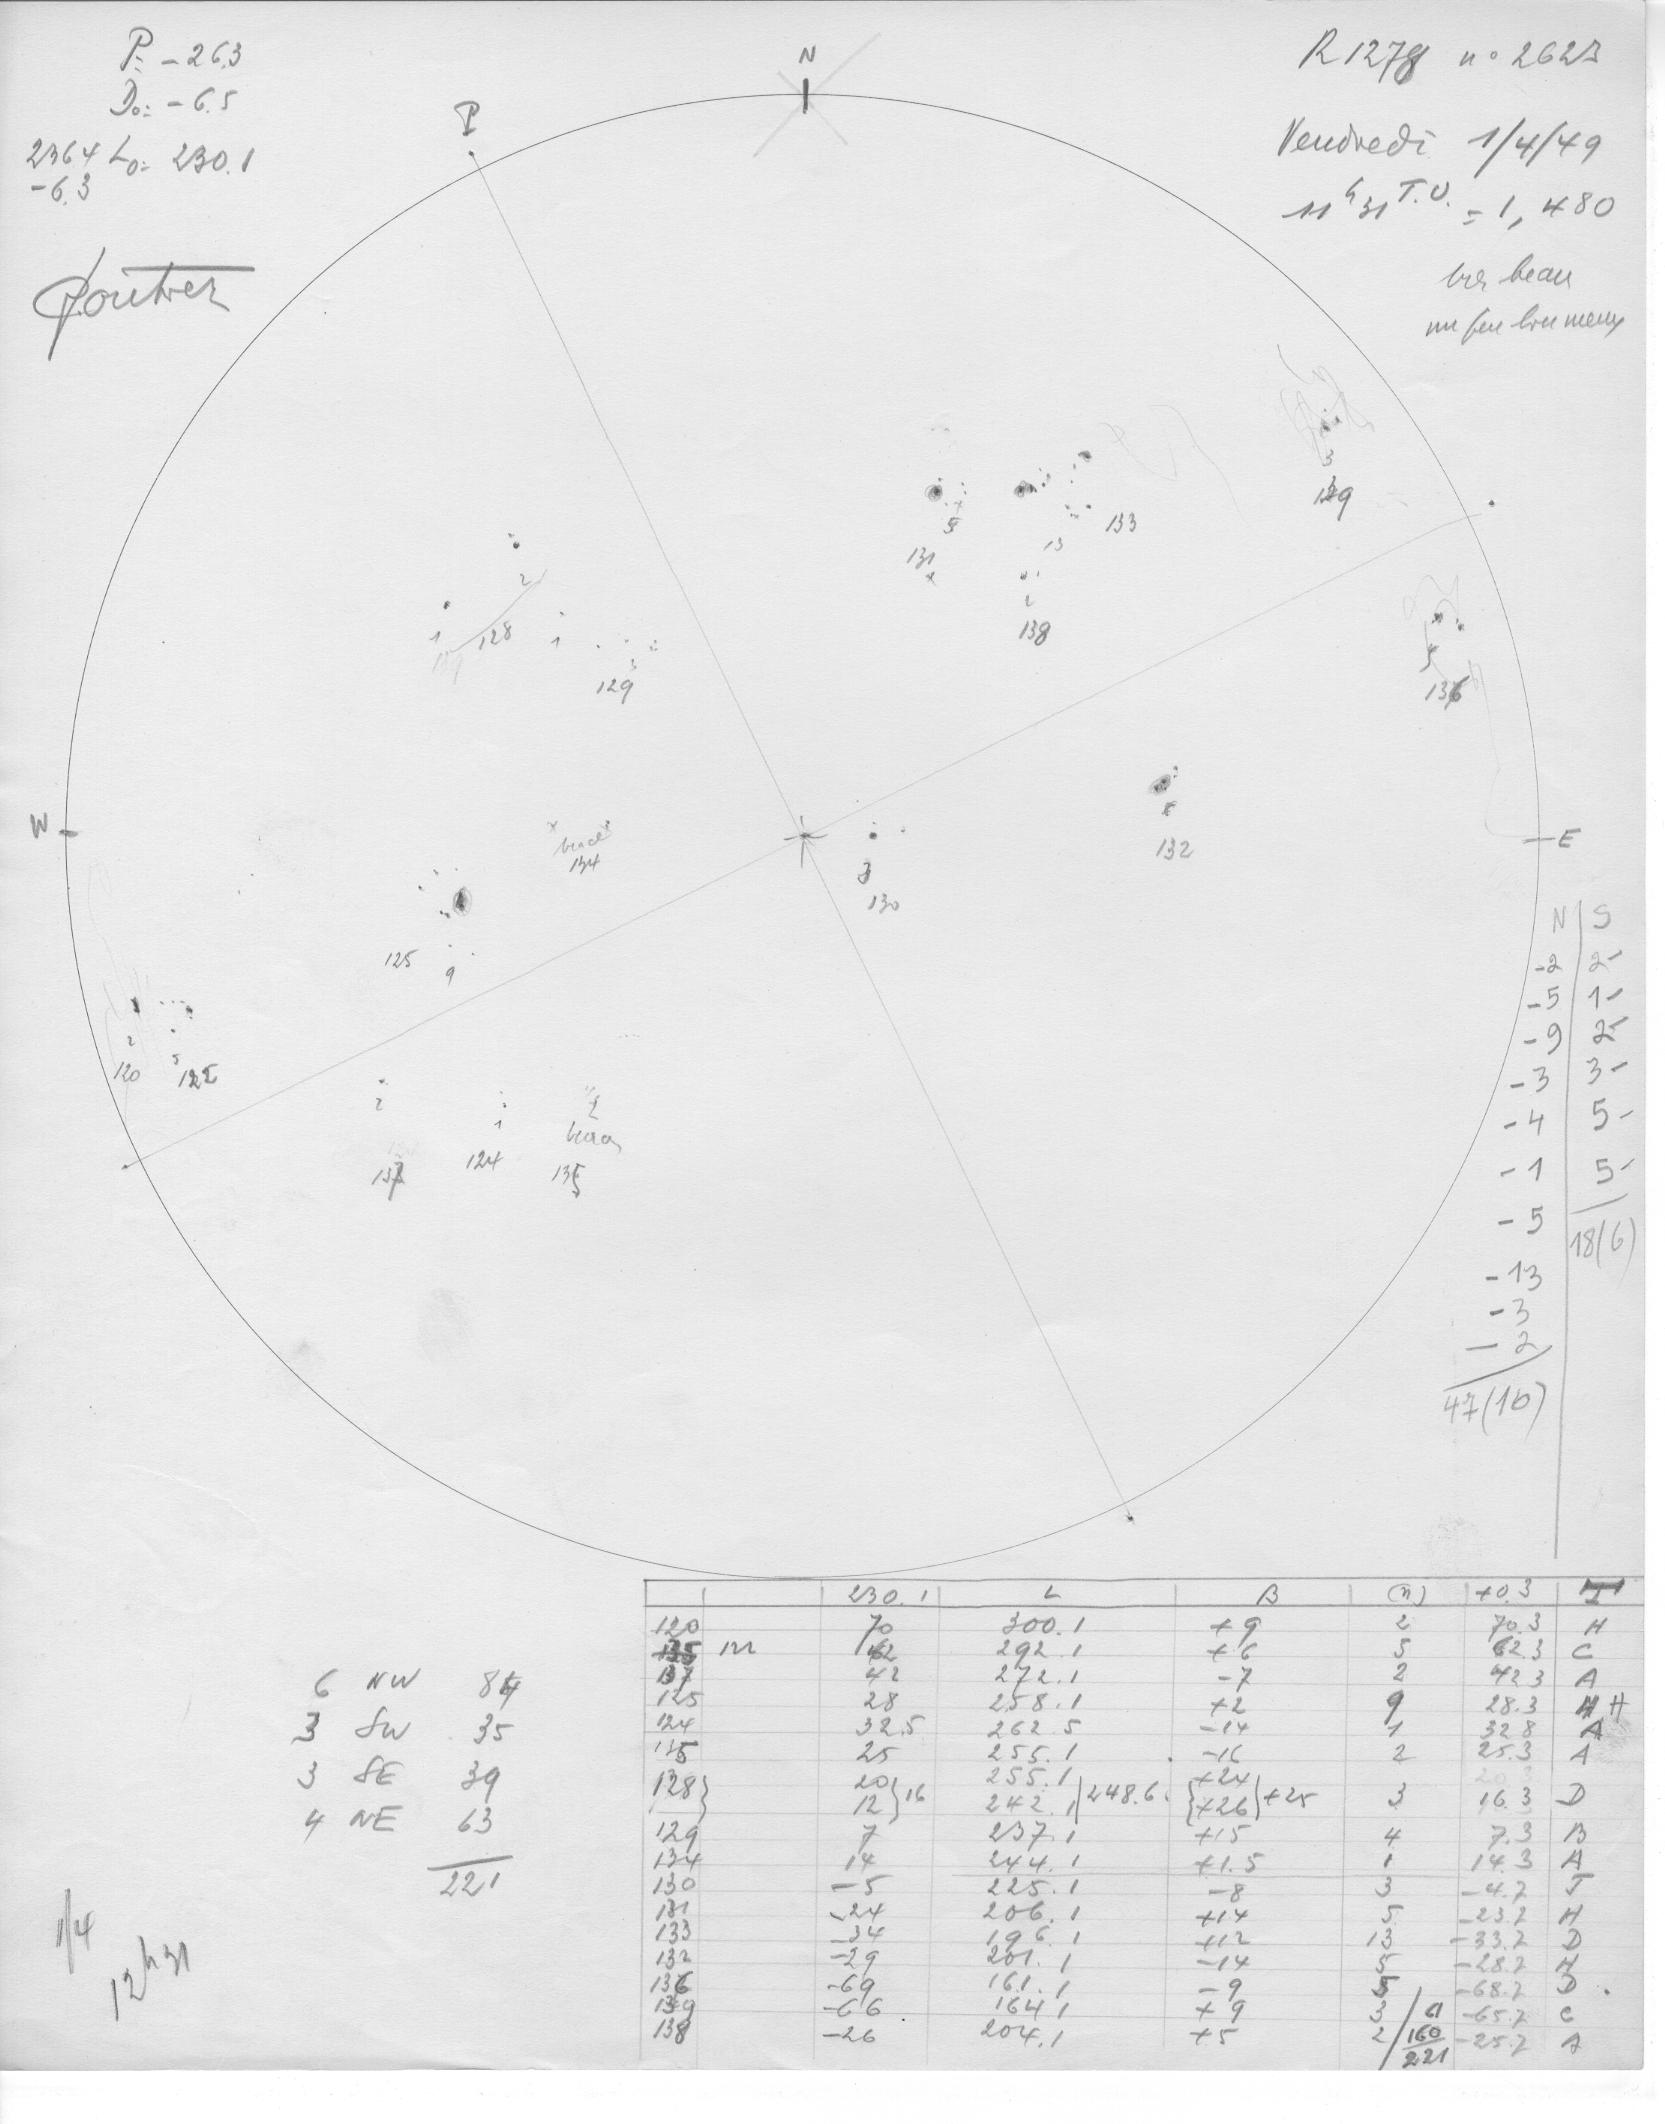 P= -26.3
D₀= -6.5
2364 L₀= 230.1
-6.3
P
N
R 1278 n° 2623
Vendredi 1/4/49
11h31 T.U. = 1,480
très beau
un peu brumeux
W
E
3
139
5
131
13
133
2
138
2
1
128
1
3
129
5
136
134
3
130
5
132
125
9
2
120
5
122
2
137
1
124
2
135
N | S
-2 | 2-
-5 | 1-
-9 | 2-
-3 | 3-
-4 | 5-
-1 | 5-
-5 | 18(6)
-13
-3
-2
47(10)
6 NW 84
3 SW 35
3 SE 39
4 NE 63
221
1/4
12h31
230.1 L B (n) +0.3 T
120 70 300.1 +9 2 70.3 H
122 62 292.1 +6 5 62.3 C
137 42 272.1 -7 2 42.3 A
125 28 258.1 +2 9 28.3 H H
124 32.5 262.5 -14 1 32.8 A
135 25 255.1 -16 2 25.3 A
128} 20 }16 255.1 |248.6 {+24 }+25 3 16.3 D
12 242.1 +26
129 7 237.1 +15 4 7.3 B
134 14 244.1 +1.5 1 14.3 A
130 -5 225.1 -8 3 -4.7 J
131 -24 206.1 +14 5 -23.7 H
133 -34 196.1 +12 13 -33.7 D
132 -29 201.1 -14 5 -28.7 H
136 -69 161.1 -9 5 -68.7 D
139 -66 164.1 +9 3 / 61 -65.7 C
138 -26 204.1 +5 2 / 160 -25.7 A
221